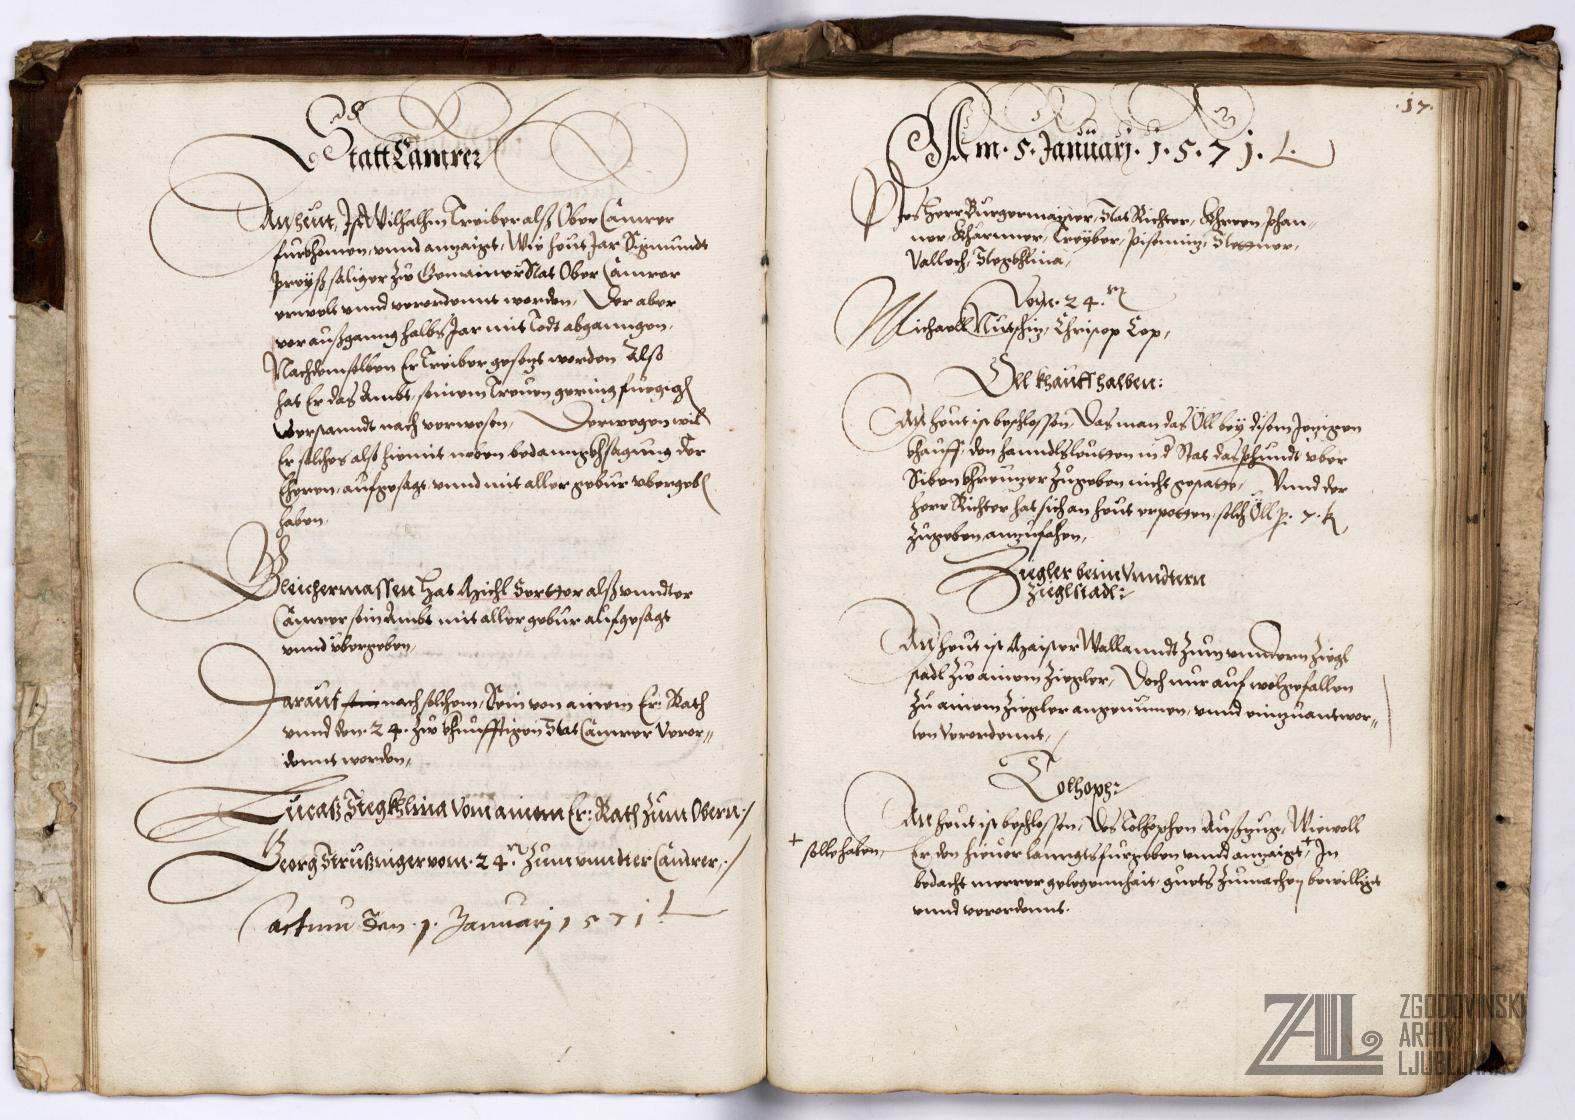 StattCamrer
Anheut, Ist Wilhalhm Treiber alß Ober Camrer
furkhomen, vnnd anzaigt, Wie heut Jar Sigmundt
Preyß säliger zw Gemainer Stat Ober Camrer
erwelt vnnd verordennt worden, Der aber
vor außganng halbs Jar mit Todt abganngen,
Nachdemselben Er Treiber gesezt worden Alß
hat Er das Ambt, seinem Treuen gering fuegigen
verstanndt nach verwesen, Derwegen will
Er solches alß hiemit neben bedannkhsagung der
Eheren, aufgesagt, vnnd mit aller gebur vbergeben
haben,
Gleichermassen hat Michl Sertter alß vnndter
Camrer sein Ambt mit aller gebur aufgesagt
vnnd vbergeben,
Darauf nach solchem, Sein von ainem Er: Rath
vnnd den 24. zw khunfftigen Stat Camrer Veror-
dennt worden,
Lucaß Stegkhlina Vom ainem Er: Rath zum Obern,/
Georg Straußinger vom 24.n zum vnnter Camrer,/
Actum Den 1. Januarj 1571
17.
Am. 5. Januarj. 1. 5. 7 1.
Pres Herr Burgermaister, Stat Richter, Khren, Johan-
ner, Kharnner, Treyber, Stettner,
Valloch, Stegkhlina,
Vom. 24.
Michaell Nutschin, Christop Cop,
Öll khauff halben:
An heut ist beschlossen, Das man das Öll bey disem Jezigen
khauff, den hanndtsleutten in d Stat das phundt vber
Siben khreuzer zugeben nicht gestatte, Vnnd der
Herr Richter hat sich an heut erpotten, solch Öll p. 7. k
zugeben anzufahen,
Ziegler beim Vnndtern
Zieglstadl:
An heut ist Maister Wallanndt zum vnndern Ziegl
stadl zw ainem Ziegler, Doch nur auf wolgefallen
zu ainem Ziegler angenumen, vnnd einzuantwor-
ten Verordennt,
Tolhoph:
An heut ist beschlossen, Des Tolhophen Außzug, Wiewoll
+ solle haben,
Er den hieuor lanngts furgeben vnnd anzaigt + In
bedacht merrer gelegennhait, guets zumachen bewilligt
vnnd verordennt.
ZAL
ZGODOVINSKI
ARHIV
LJUBLJANA